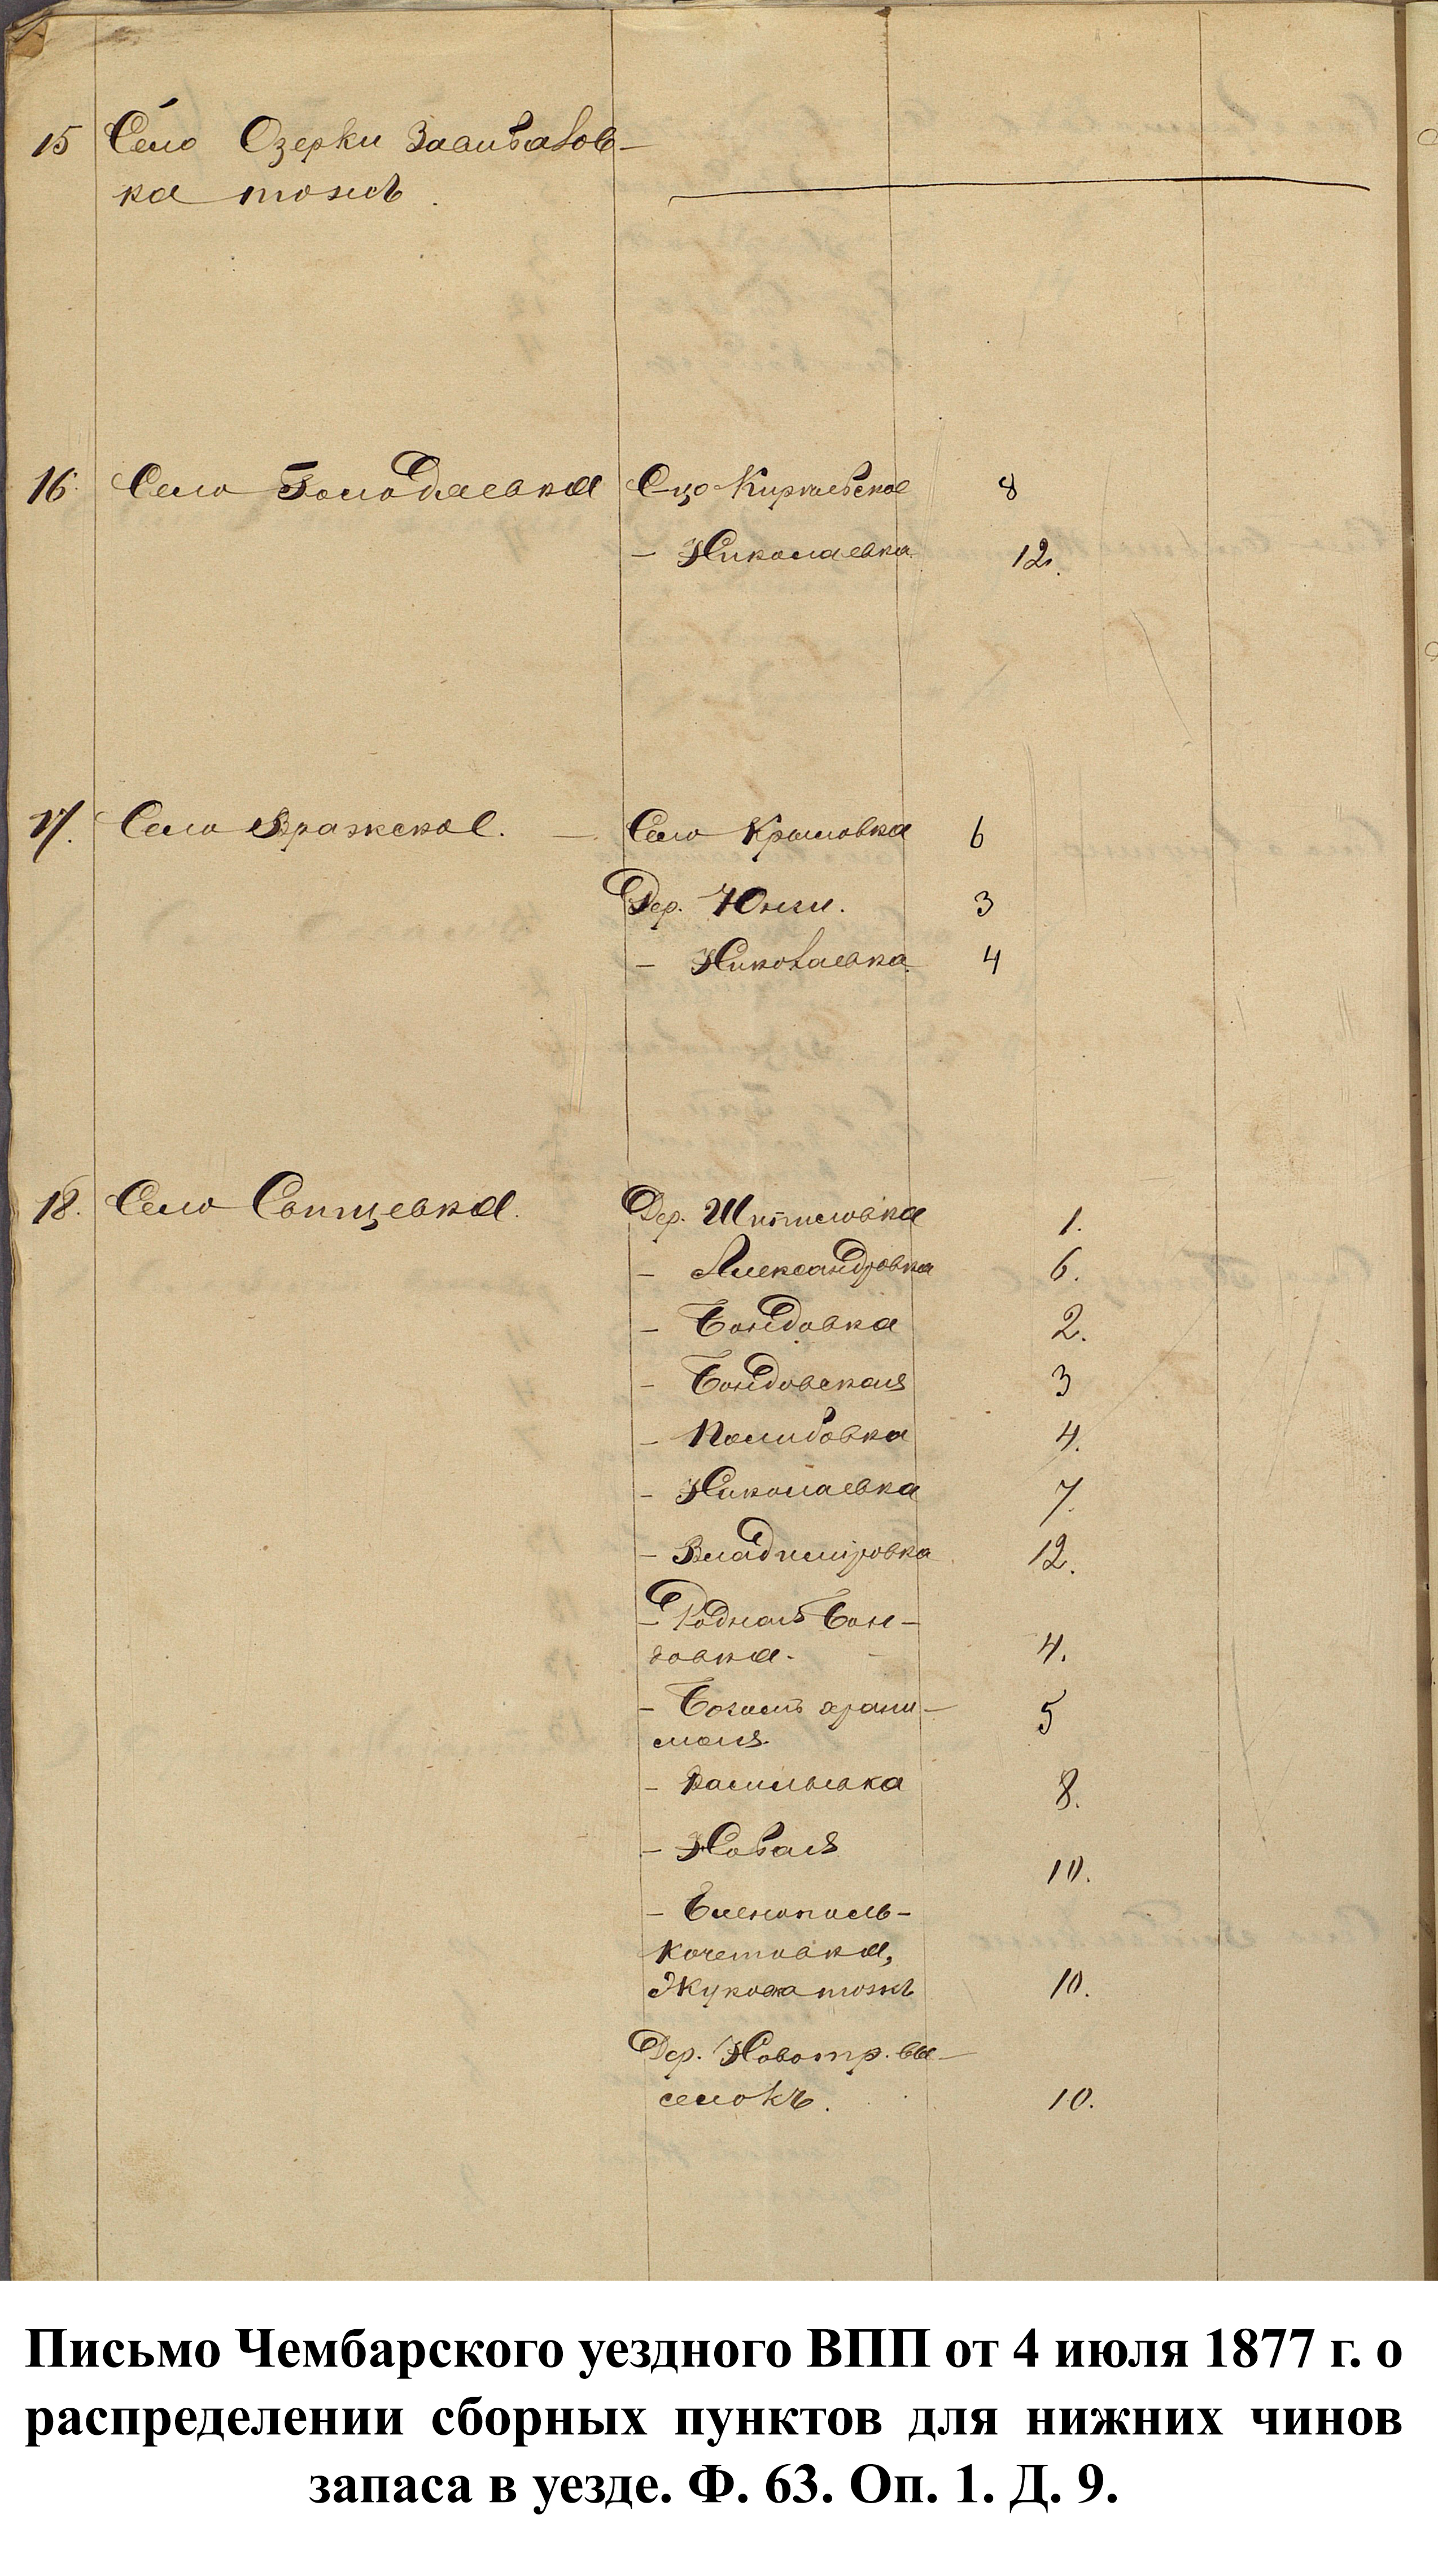 15 Село Озерки Заливалов-
ка тожъ.
16. Село Голодяевка Сцо Кириевское 8
- Николаевка 12.
17. Село Вражское. — Село Крыловка 6
Дер. Юнги. 3
- Николаевка. 4
18. Село Свищевка. Дер. Шиповка 1.
- Александровка 6.
- Бондовка 2.
- Бондовская 3
- Полибовка 4.
- Николаевка 7.
- Владиміровка 12.
- Родная Бон-
довка. 4.
- Богомъ храни-
мая. 5
- Васильевка 8.
- Новая 10.
- Еленополь-
Кочетовка,
Жукова тожъ 10.
Дер. Новотр. вы-
селокъ. 10.
Письмо Чембарского уездного ВПП от 4 июля 1877 г. о
распределении сборных пунктов для нижних чинов
запаса в уезде. Ф. 63. Оп. 1. Д. 9.